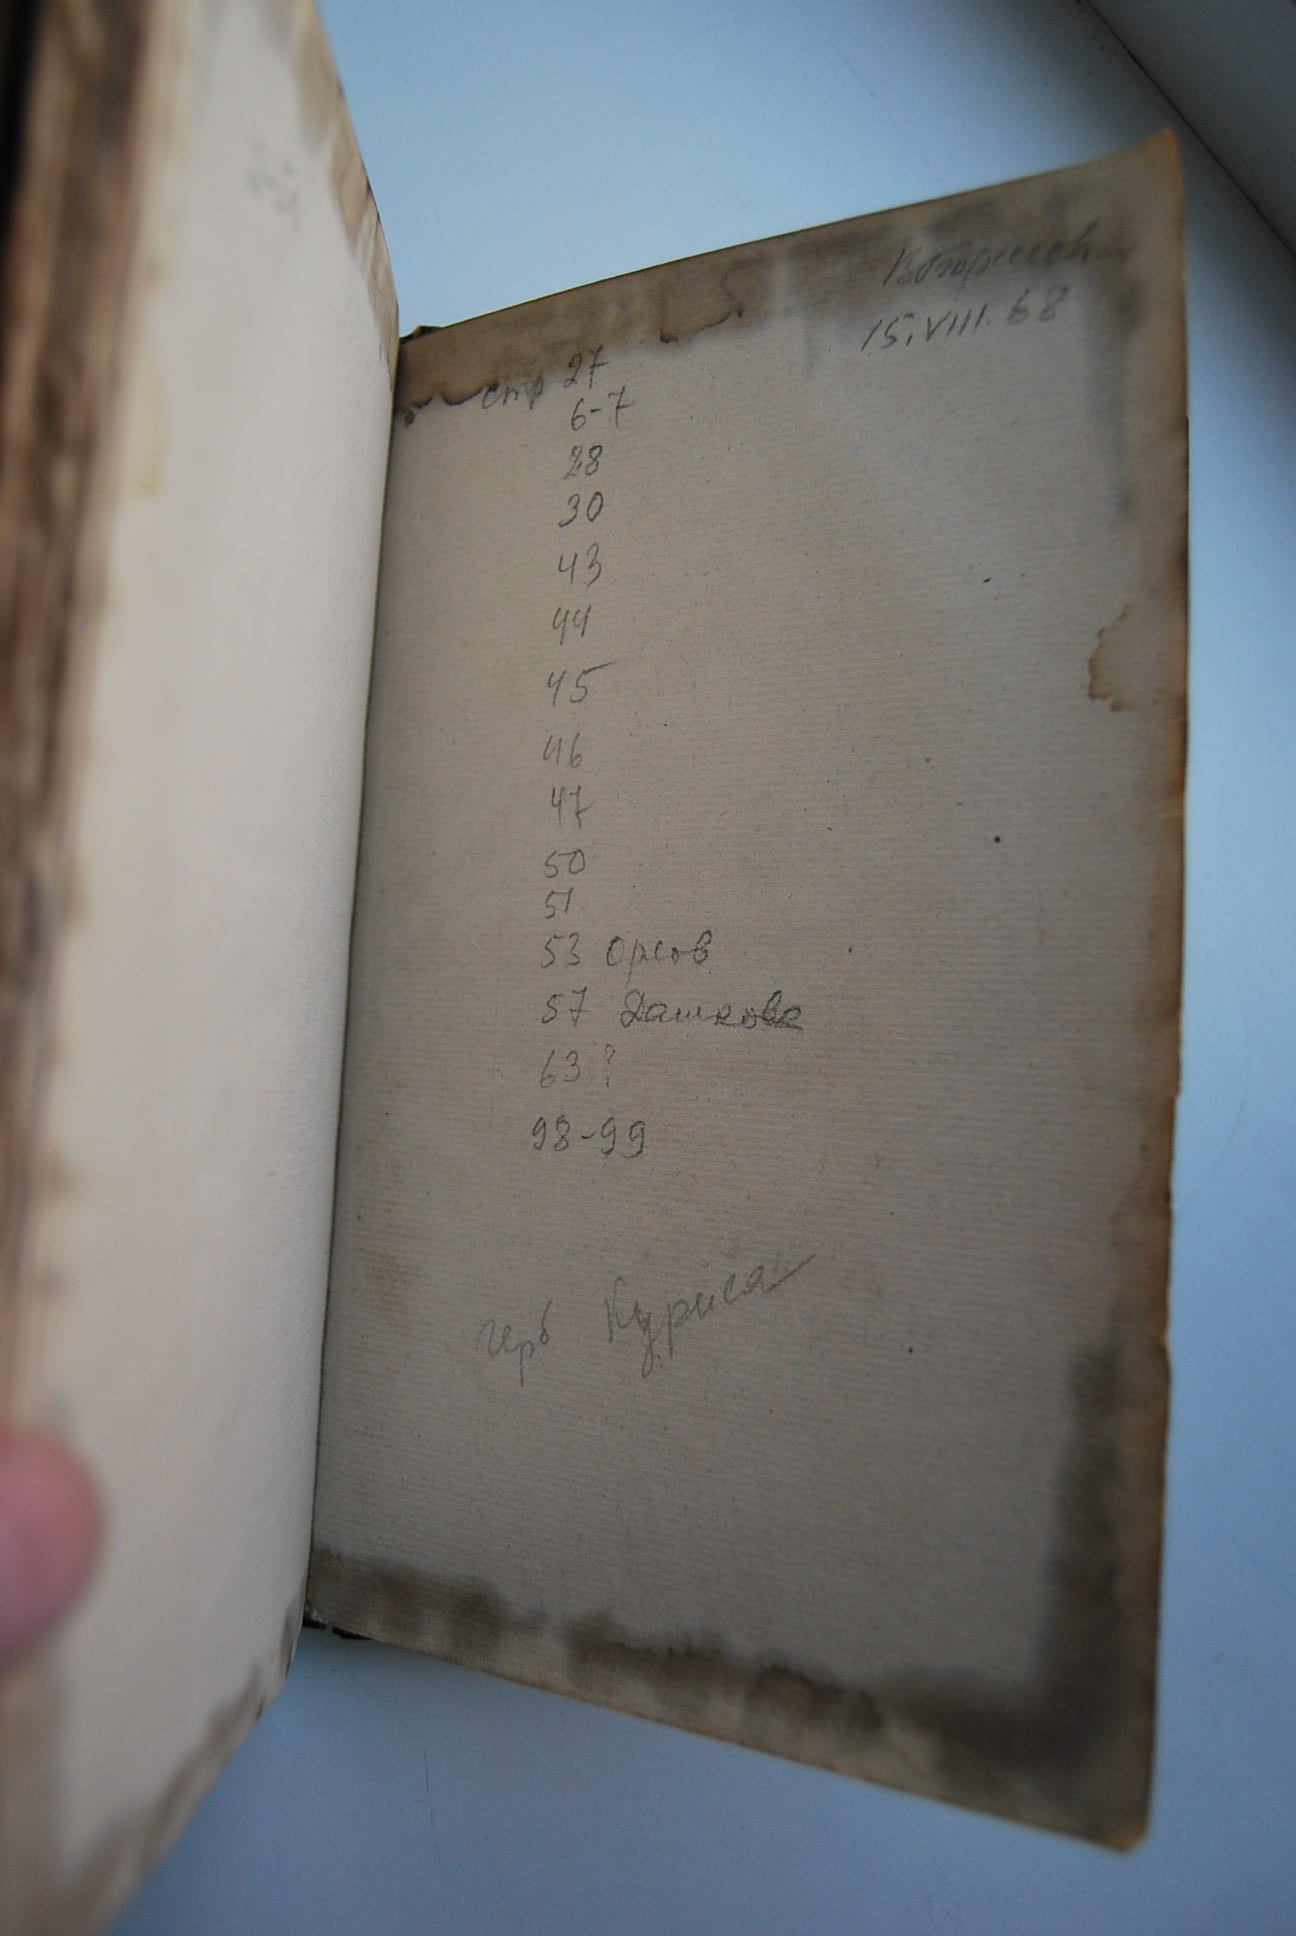 15.VIII.68
стр 27
6-7
28
30
43
44
45
46
47
50
51
53 Орлов
57 Дашкова
63 ?
98-99
герб Куриса